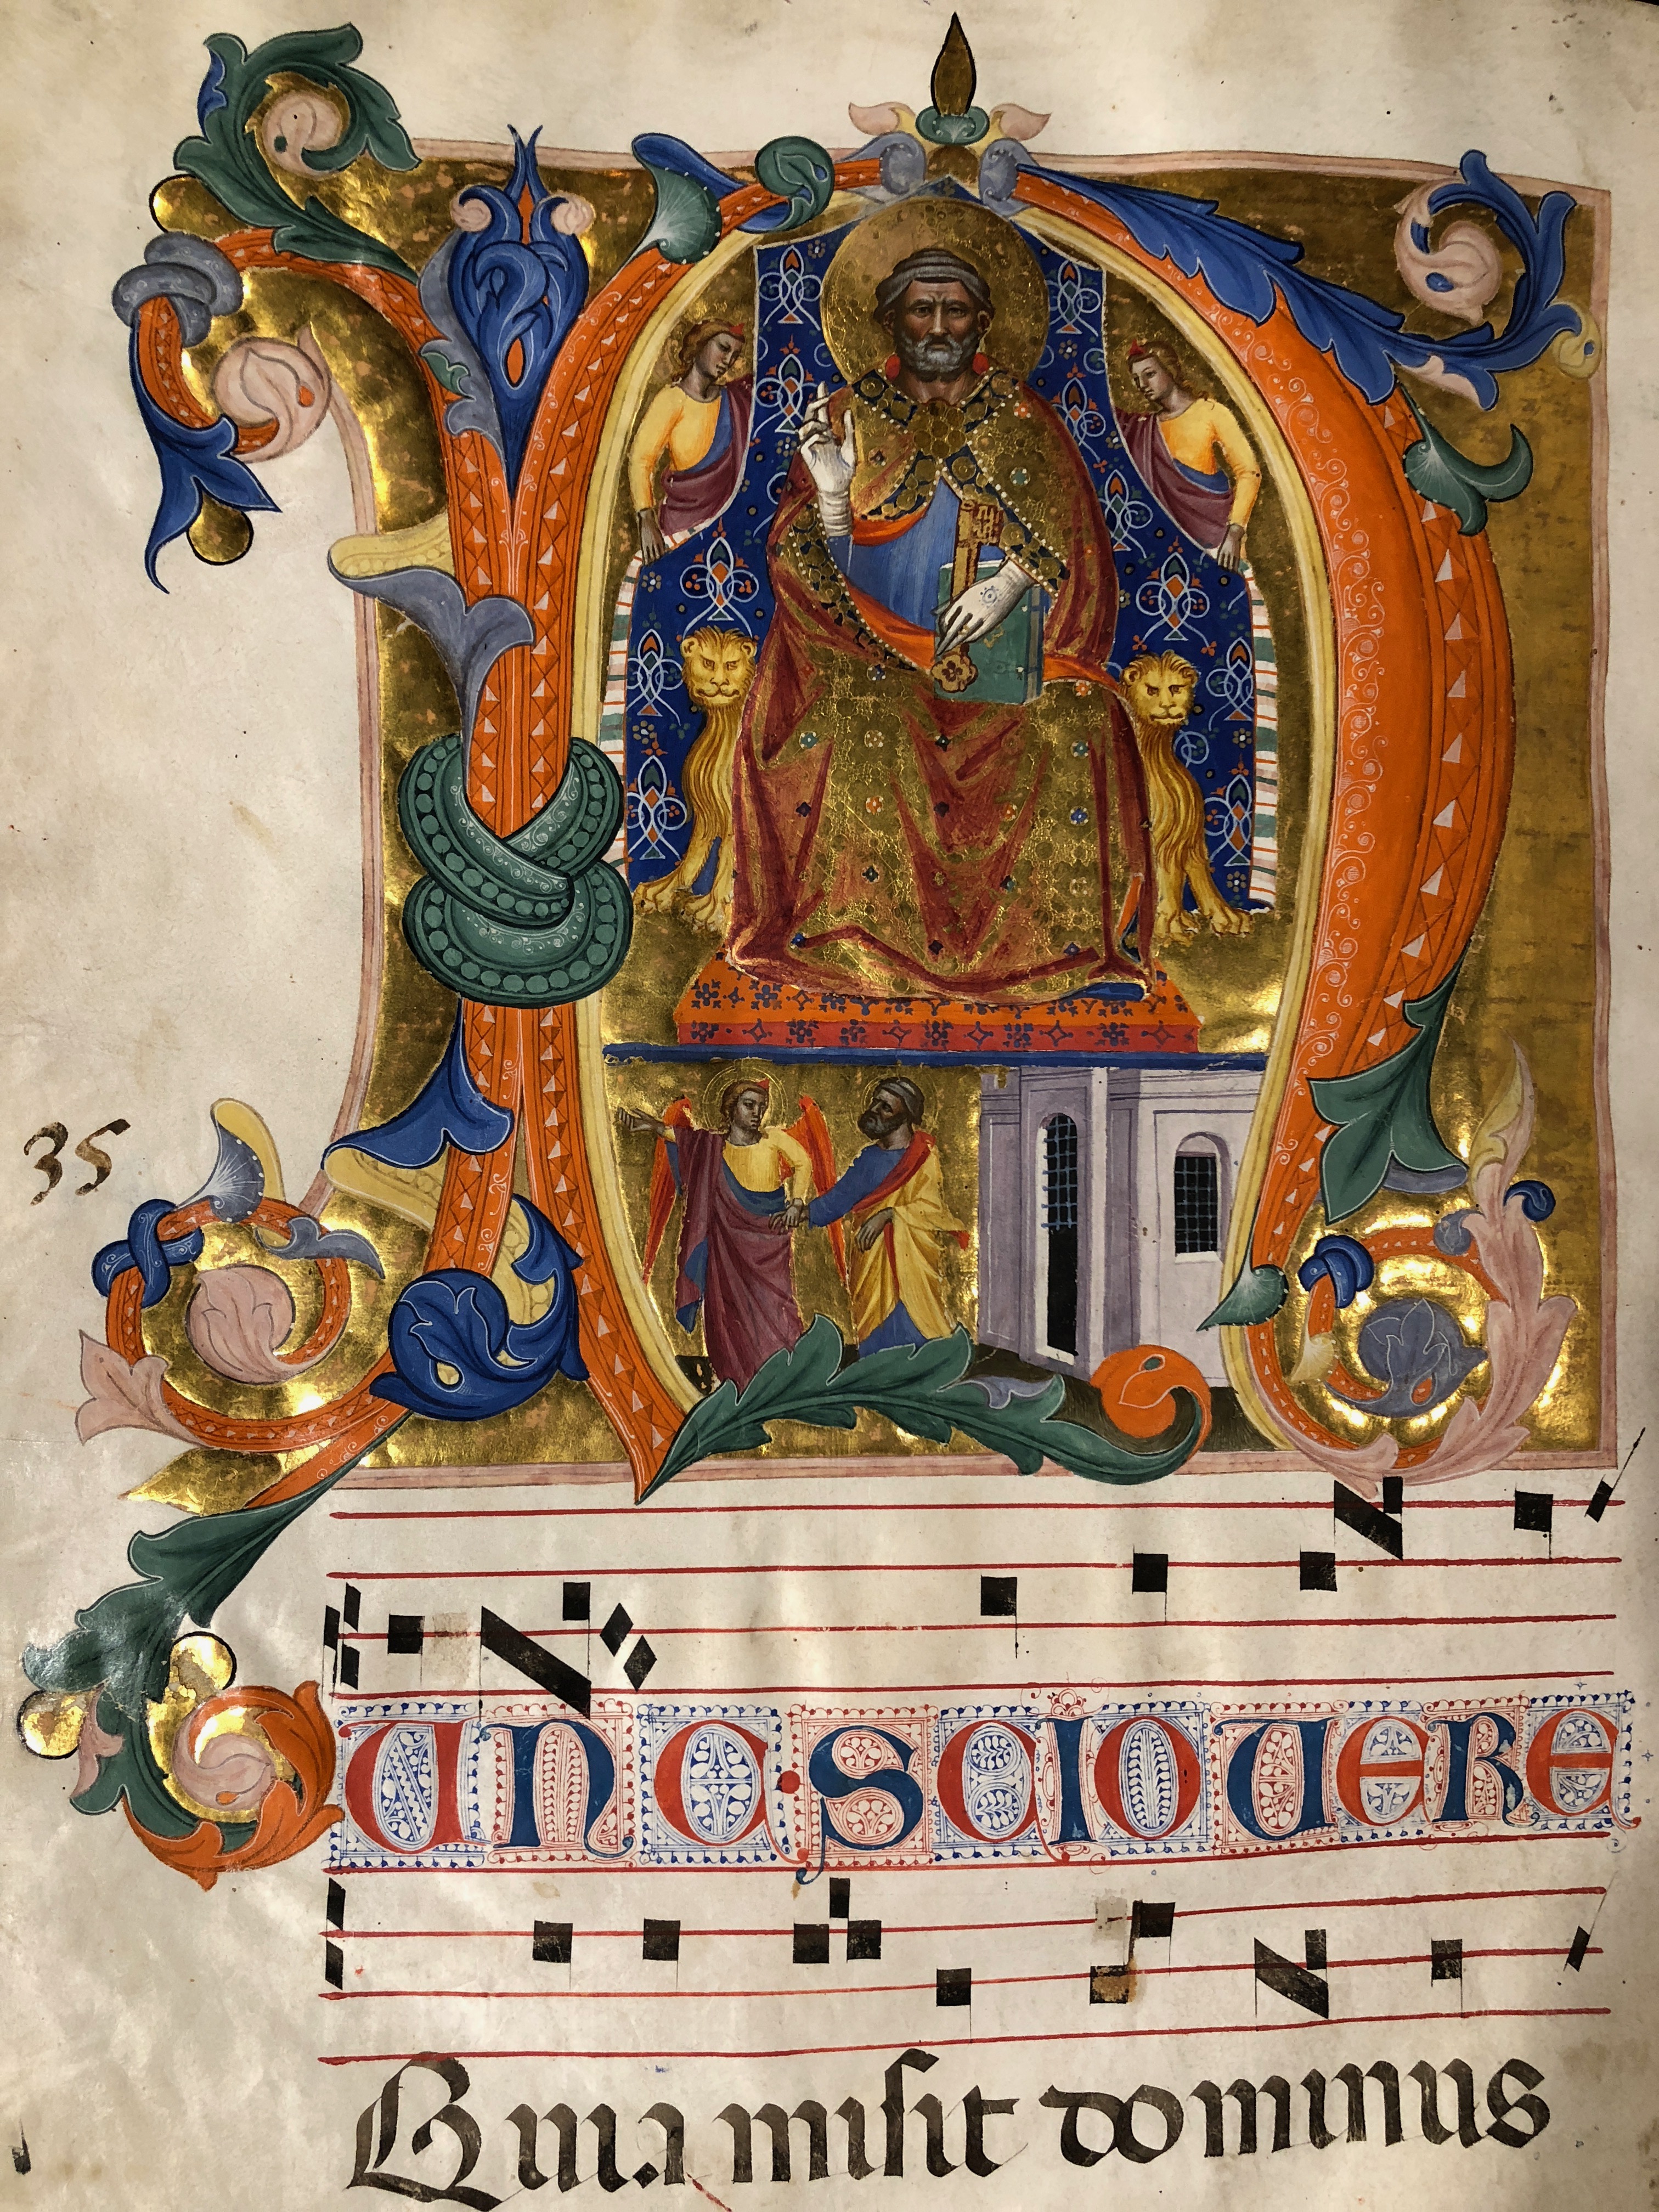 35
NUNC SCIO UERE
Quia misit dominus